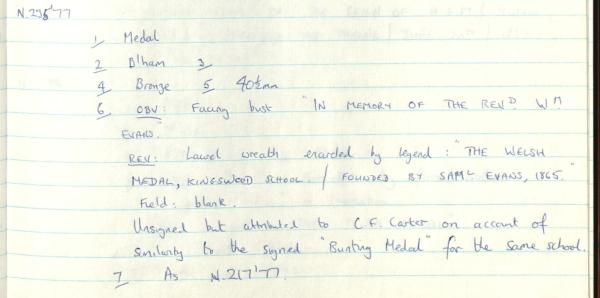 N.235'77
1 Medal
2 B'ham 3
4 Bronze 5 40½mm
6 OBV: Facing bust "IN MEMORY OF THE REVD. WM
EVANS.
REV: Laurel wreath encircled by legend: "THE WELSH
MEDAL, KINGSWOOD SCHOOL. / FOUNDED BY SAML EVANS, 1865."
Field: blank.
Unsigned but attributed to C.F. Carter on account of
similarity to the signed "Bunting Medal" for the same school.
7 As N.217'77.